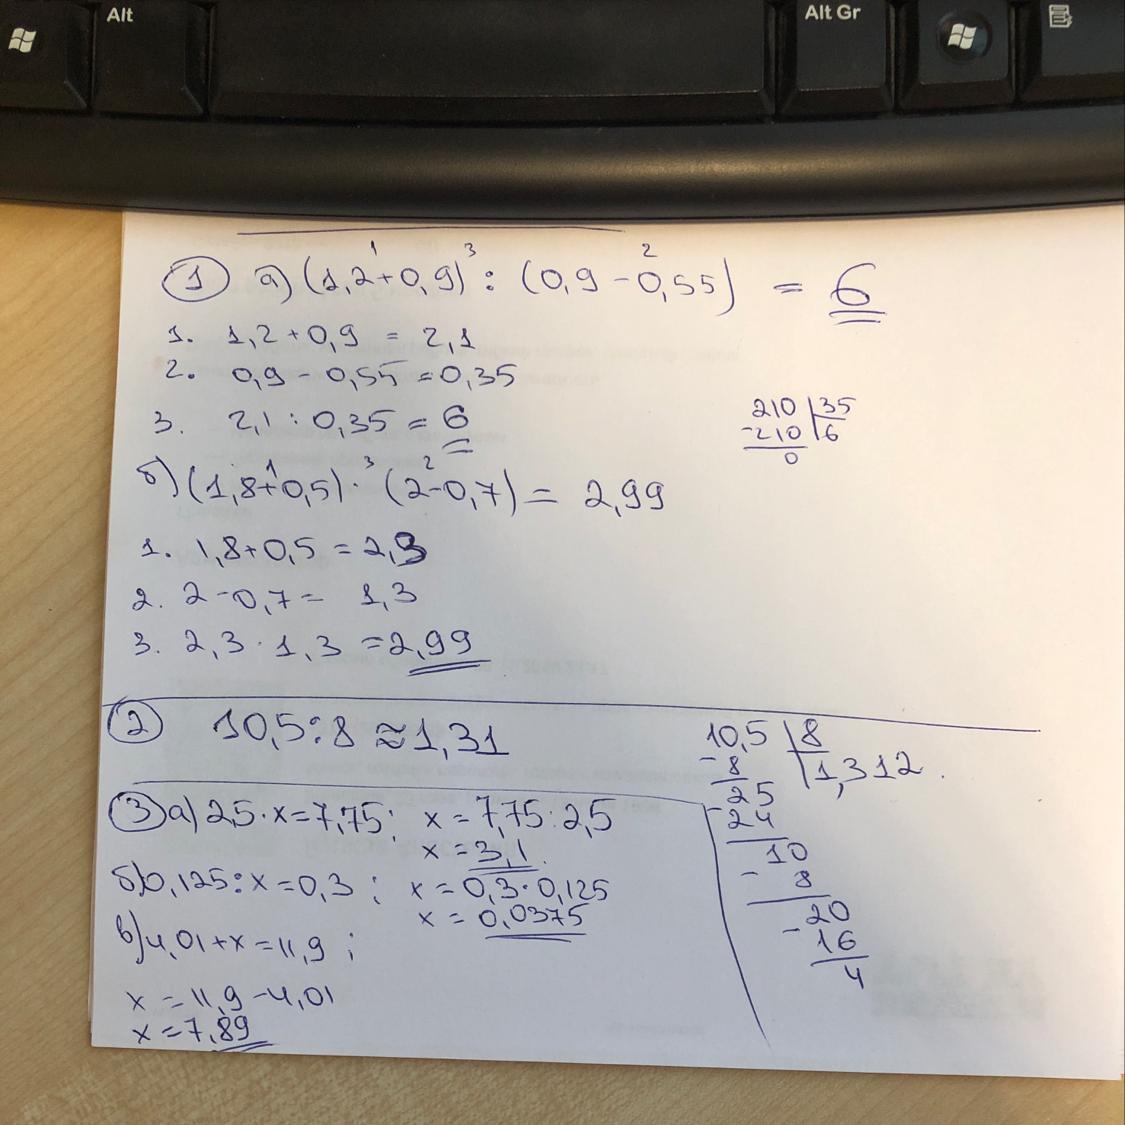 Alt
Alt Gr
1 а) (1,2+0,9) : (0,9-0,55) = 6
1 3 2
1. 1,2+0,9 = 2,1
2. 0,9 - 0,55 = 0,35
3. 2,1 : 0,35 = 6
210 35
-210 6
0
б) (1,8+0,5) · (2-0,7) = 2,99
1 3 2
1. 1,8+0,5 = 2,3
2. 2-0,7 = 1,3
3. 2,3 · 1,3 = 2,99
2 10,5:8 ≈ 1,31
10,5 8
-8 1,312
25
-24
10
- 8
20
- 16
4
3 а) 2,5·x=7,75; x = 7,75:2,5
x = 3,1
б) 0,125:x=0,3; x = 0,3·0,125
x = 0,0375
в) 4,01+x=11,9;
x = 11,9-4,01
x = 7,89